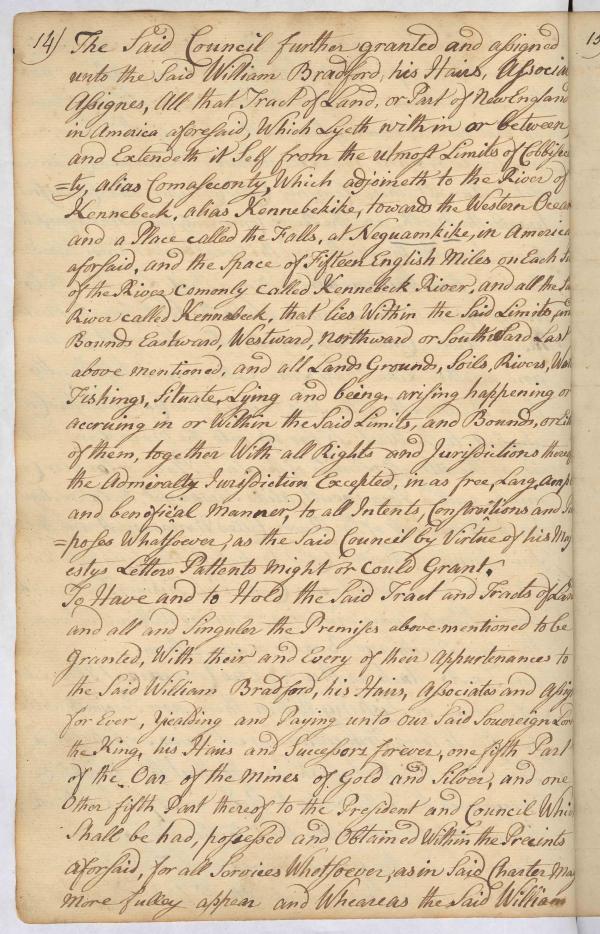 14) The Said Council further granted and assigned
unto the Said William Bradford, his Hairs, Associa
Assignes, All that Tract of Land, or Part of New England
in America aforesaid, Which Lyeth within or between,
and Extendeth it Self from the utmost Limits of Cobbisec
=ty, alias Comaseconty, Which adjoineth to the River of
Kennebeck, alias Kennebekike, towards the Western Ocean
and a Place called the Falls, at Nequamkike, in America
aforsaid, and the Space of Fifteen English Miles on Each
of the River comonly called Kennebeck River, and all the
River called Kennebeck, that lies Within the Said Limits, and
Bounds Eastward, Westward, Northward or Southward Last
above mentioned, and all Lands Grounds, Soils, Rivers, Wat
Fishings, Situate, Lying and being, arising happening or
accruing in or Within the Said Limits, and Bounds, or
of them, together With all Rights and Jurisdictions there
the Admiralty Jurisdiction Excepted, in as free, Larg, amp
and benificial Manner, to all Intents, Constroitions and
=poses Whatsoever, as the Said Council by Virtue of his Maj
estys Letters Pattents Might or Could Grant.
To Have and to Hold the Said Tract and Tracts of Lan
and all and Singuler the Premises above mentioned to be
Granted, With their and Every of their Appurtenances to
the Said William Bradford, his Hairs, Associates and Assign
for Ever, Yealding and Paying unto our Said Sovereign Lord
the King, his Hairs and Successors forever, one fifth Part
of the Oar of the Mines of Gold and Silver, and one
Other fifth Part thereof to the President and Council Whic
Shall be had, possessed and Obtained Within the Precints
aforsaid, for all Services Whotsoever, as in Said Charter May
More fulley appear and Wheareas the Said William
15